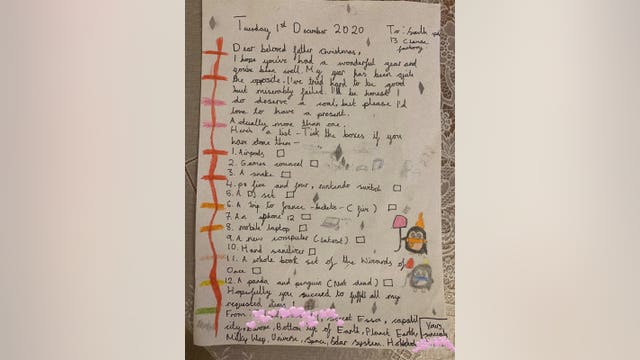 Tuesday 1st December 2020
To: South
13 Clause
factory
Dear beloved father Christmas,
I hope you've had a wonderful year and
you've been well. My year has been quite
the opposite. I've tried hard to be good
but miserably failed. I'll be honest I
do deserve a coal, but please I'd
love to have a present.
Actually more than one.
Here's a list - Tick the boxes if you
have done them -
1. Airpods
2. Games
3. A snake
4. ps five and four, nintendo switch
5. A DJ set
6. A trip to france - tickets - (five)
7. An iphone 12
8. mobile laptop
9. A new computer (latest)
10. Hand sanitizer
11. A whole book set of the Wizards of
Once
12. A panda and penguin (Not dead)
Hopefully you succeed to fulfill all my
requested items!
From: Essex, capital
city, Europe, Bottom of Earth, Planet Earth,
Milky Way, Universe, Space, Solar system,
Yours
sincerely